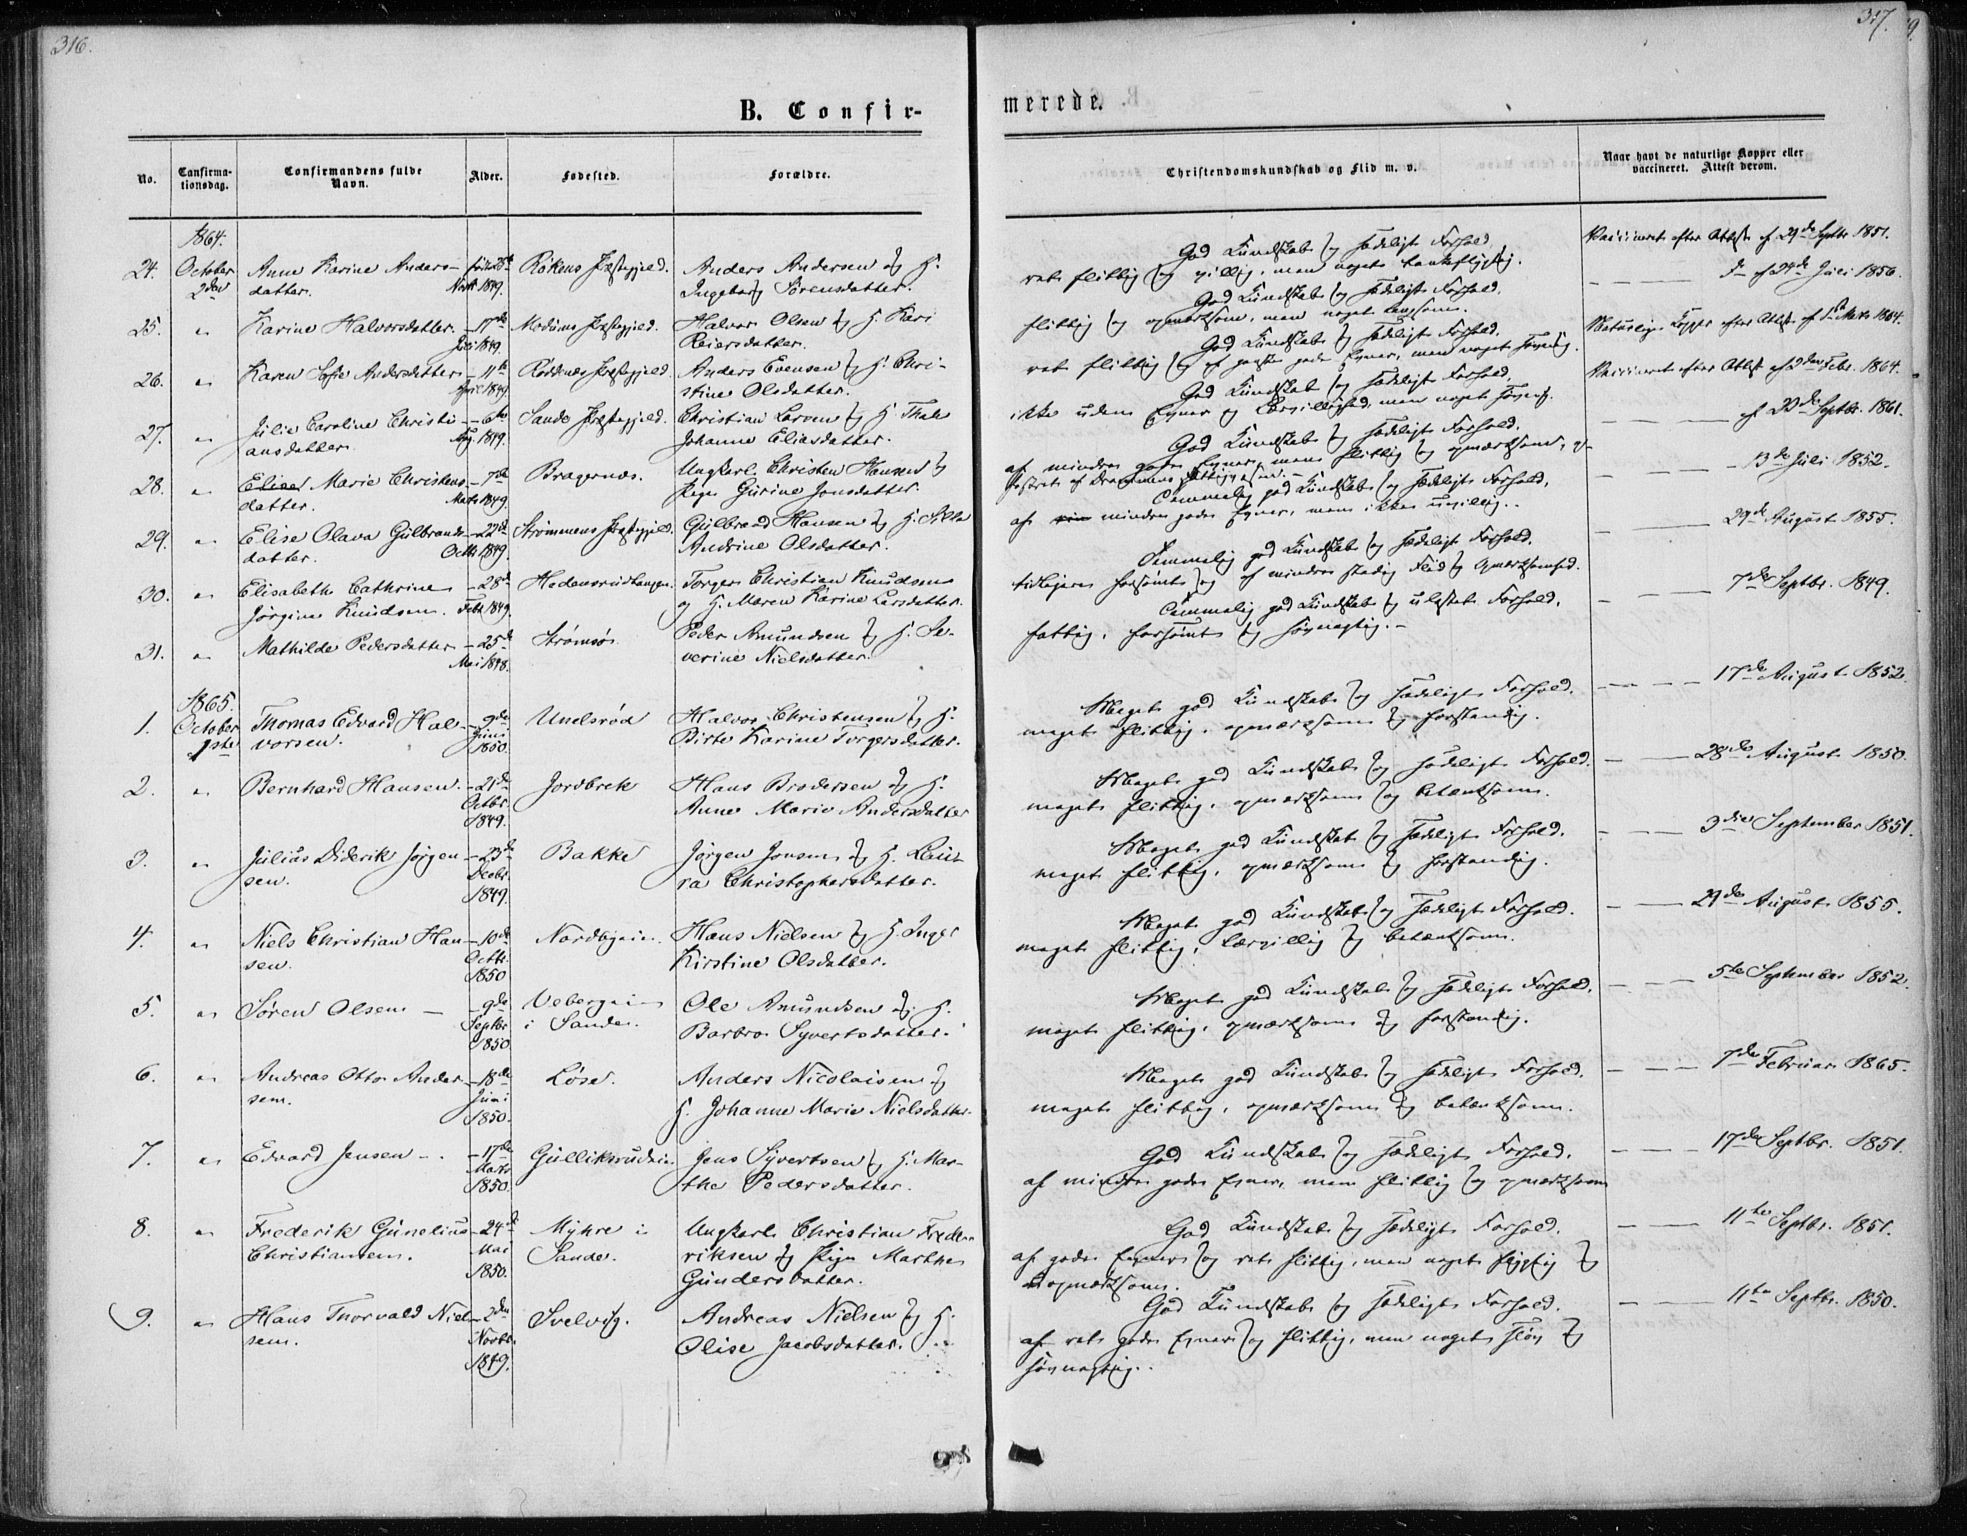 316.
317.
B. Confir-
merede.
No.
Confirma-
tionsdag.
Confirmandens fulde
Navn.
Alder.
Fødested.
Forældre.
Christendomskundskab og Flid m. v.
Naar havt de naturlige Kopper eller
vaccineret. Attest derom.
1864.
24. October Anne Karine Anders- Røkens Præstegjeld. Anders Andersen og H.
2den datter. Novb 1849. Ingeborg Sørensdatter.
God Kundskab og sædeligt Forhold,
ret flittig og villig, men noget tankeflygtig.
Vaccineret efter Attest af 29de Septbr 1851.
25. " Karine Halvorsdatter. - 17de Modums Præstegjeld. Halvor Olsen og H. Kari
Juli 1849. Reiersdatter.
God Kundskab og sædeligt Forhold,
flittig og opmærksom, men noget
Do af 24de Juli 1850.
26. " Karen Sofie Andersdatter - 11te Røddenes Præstegjeld. Anders Evensen og H. Chri-
April 1849. stine Olsdatter.
God Kundskab og sædeligt Forhold,
ret flittig og af ganske gode Evner, men noget
Naturlige Kopper efter Attest af Marts 1864.
27. " Julie Caroline Christi- - 6te Sande Præstegjeld. Christian Larsen og H. Thale
ansdatter. Aug. 1849. Johanne Eliasdatter.
God Kundskab og sædeligt Forhold,
ikke uden Evner og Lærvillighed, men noget
Vaccineret efter Attest af 2den Febr. 1864.
28. " Elise Marie Christens- - 7de Bragernæs. Ungkarl Christen Hansen og
datter. Marts 1849. Pige Gurine Jonsdatter.
God Kundskab og sædeligt Forhold,
af mindre gode Evner, men flittig og opmærksom, op-
fostret af Drammens Fattigvæsen.
af 22de Septbr. 1861.
29. " Elise Olava Gulbrands- - 22de Strømmens Præstegjeld. Gulbrand Hansen og H. Silla
datter. Octb. 1849. Andrine Olsdatter.
Temmelig god Kundskab og sædeligt Forhold,
af mindre gode Evner, men ikke uvillig.
13de Juli 1852.
30. " Elisabeth Cathrine - 28de Hedensrudtangen. Torger Christian Knudsen
Jørgine Knudsen. Febr 1849. og H. Maren Karine Larsdatter.
Temmelig god Kundskab og sædeligt Forhold,
tidligere forsømt og af mindre stadig Flid og Opmærksomhed.
29de August 1855.
31. " Mathilde Pedersdatter - 25de Strømsø. Peder Amundsen og H. Se-
Mai 1848. verine Nielsdatter.
Temmelig god Kundskab og ulastet Forhold,
fattig, forsømt og søvnagtig.
7de Septbr. 1849.
1865.
1. October Thomas Edvard Hal- - 9de Unelsrød Halvor Christensen og H.
1ste vorsen. Juni 1850. Birte Karine Torgersdatter.
Meget god Kundskab og sædeligt Forhold,
meget flittig, opmærksom og forstandig.
17de August 1852.
2. " Bernhard Hansen. - 21de Jordbrek Hans Brodersen og H.
Octbr. 1849. Anne Marie Andersdatter
Meget god Kundskab og sædeligt Forhold.
meget flittig, opmærksom og betænksom.
28de August 1850.
3. " Julius Diderik Jørgen- - 23de Bakke Jørgen Jonsen og H. Lau-
sen. Decbr. 1849. ra Christophersdatter.
Meget god Kundskab og sædeligt Forhold.
meget flittig, opmærksom og forstandig.
3die September 1851.
4. " Niels Christian Han- - 10de Nordbyeie. Hans Nielsen og H. Inger
sen. Octb. 1850 Kirstine Olsdatter.
Meget god Kundskab og sædeligt Forhold.
meget flittig, lærvillig og betænksom.
29de August 1855.
5. " Søren Olsen - 9de i Sande. Ole Amundsen og H.
Septbr 1850 Barbro Syvertsdatter.
Meget god Kundskab og sædeligt Forhold.
meget flittig, opmærksom og forstandig.
5te September 1852.
6. " Andreas Otto Ander- - 18de Løser. Anders Nicolaisen og
sen. Juni 1850. H. Johanne Marie Nielsdatter.
Meget god Kundskab og sædeligt Forhold.
meget flittig, opmærksom og betænksom.
7de Februar 1865.
7. " Edvard Jensen - 17de Gulliksrudeie. Jens Syvertsen og H. Mar-
Marts 1850. the Pedersdatter.
God Kundskab og sædeligt Forhold.
af mindre gode Evner, men flittig og opmærksom
17de Septbr. 1851.
8. " Frederik Gunelius - 24de Myhre i Ungkarl Christian Frede-
Christiansen. Mai 1850. Sande. riksen og Pige Marthe
Gundersdatter.
God Kundskab og sædeligt Forhold.
af gode Evner og ret flittig, men noget flygtig og
uopmærksom.
11te Septbr. 1851.
9. " Hans Thorvald Niel- - 2den Svelvig. Andreas Nielsen og H.
sen. Novbr. 1849. Olise Jacobsdatter.
God Kundskab og sædeligt Forhold.
af ret gode Evner og flittig, men noget sløv og
søvnagtig.
11te Septbr. 1850.